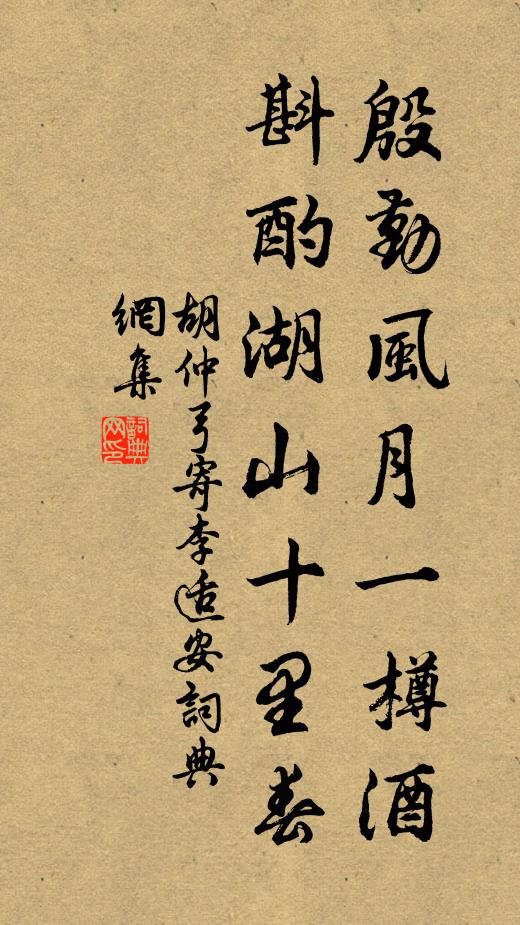 殷勤風月一樽酒
斟酌湖山十里春
胡仲弓寄李适安詞典
網集
詞典網印